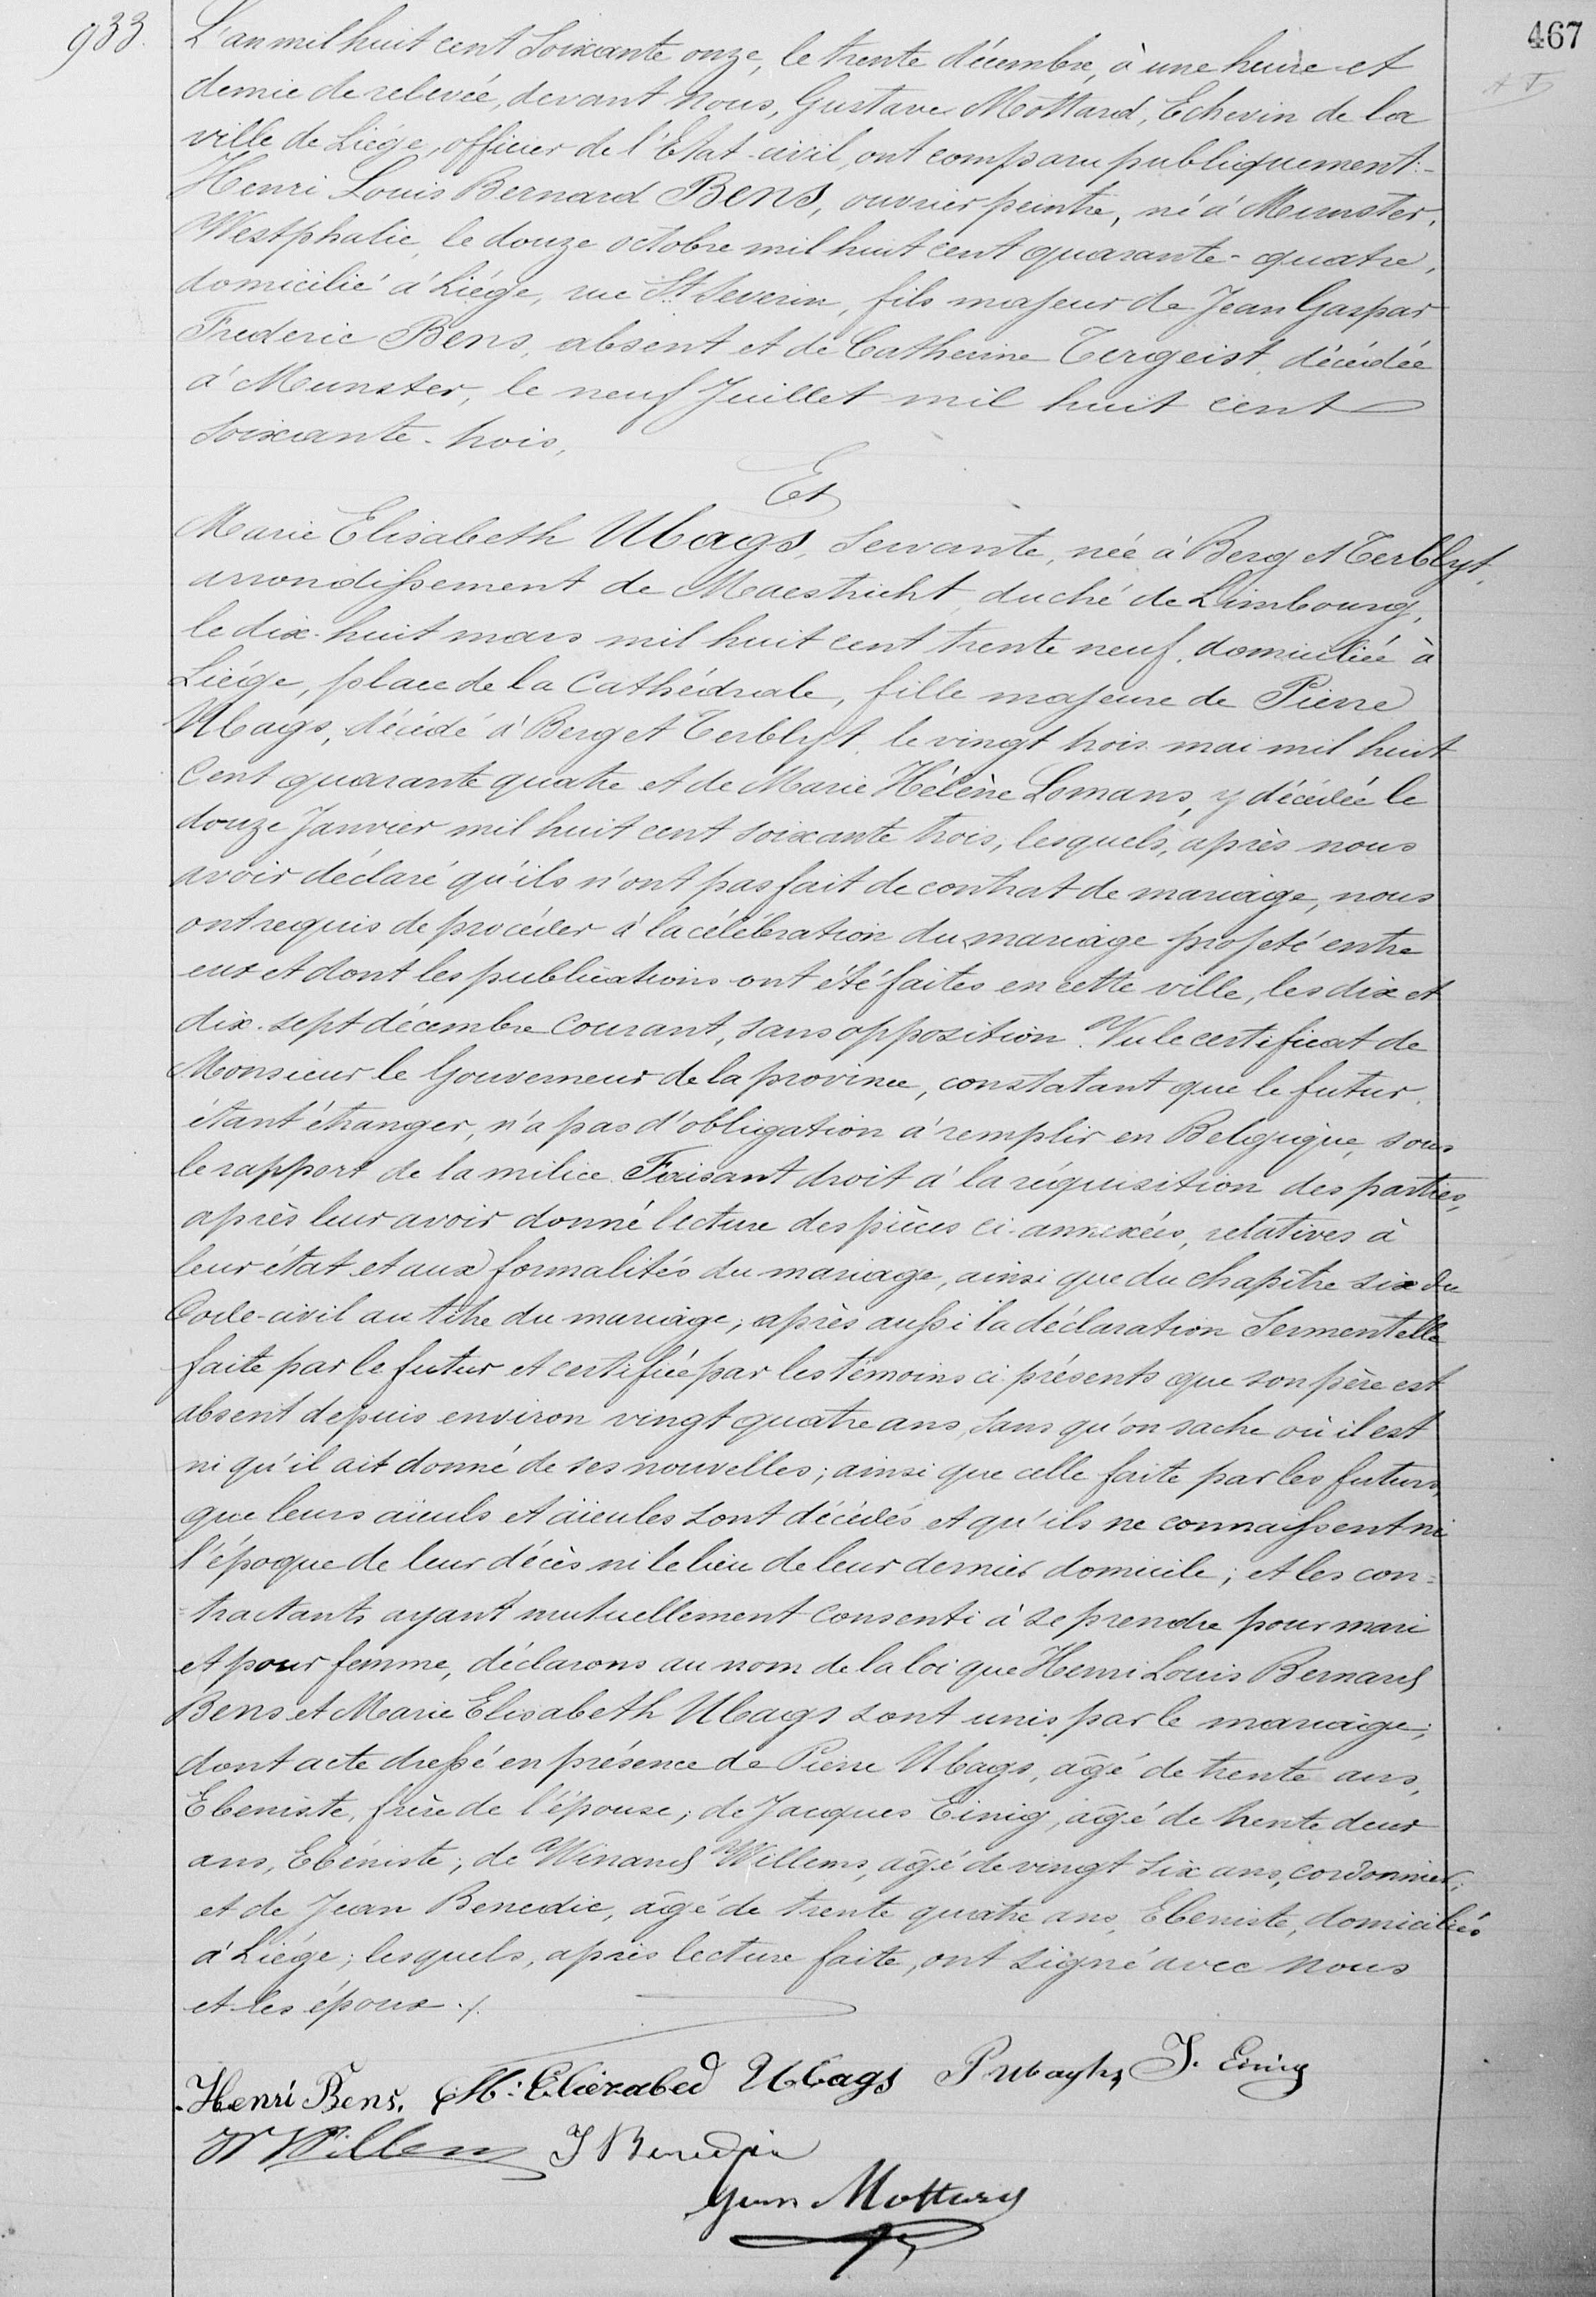 933.
467
L'an mil huit cent soixante onze, le trente décembre, à une heure et
demie de relevée, devant Nous, Gustave Mottard, Echevin de la
ville de Liége, officier de l'Etat-civil, ont comparu publiquement:-
Henri Louis Bernard Bens, ouvrier peintre, né à Munster,
Westphalie, le douze octobre mil huit cent quarante-quatre,
domicilié à Liége, rue St. Severin, fils majeur de Jean Gaspar
Frederic Bens, absent et de Catherine Tergeist, décédée
à Munster, le neuf Juillet mil huit cent
soixante-trois,
Et
Marie Elisabeth Ubags, servante, née à Berg et Terblyt,
arrondissement de Maestricht, duché de Limbourg,
le dix-huit mars mil huit cent trente neuf, domiciliée à
Liége, place de la Cathédrale, fille majeure de Pierre
Ubags, décédé à Berg et Terblyt, le vingt trois mai mil huit
cent quarante quatre et de Marie Hélène Lomans, y décédée le
douze Janvier mil huit cent soixante trois, lesquels, après nous
avoir déclaré qu'ils n'ont pas fait de contrat de mariage, nous
ont requis de procéder à la célébration du mariage projeté entre
eux et dont les publications ont été faites en cette ville, les dix et
dix-sept décembre courant, sans opposition. Vu le certificat de
Monsieur le Gouverneur de la province, constatant que le futur,
étant étranger, n'a pas d'obligation à remplir en Belgique, sous
le rapport de la milice. Faisant droit à la réquisition des parties,
après leur avoir donné lecture des pièces ci-annexées, relatives à
leur état et aux formalités du mariage, ainsi que du chapitre six du
Code-civil au titre du mariage; après aussi la déclaration sermentelle
faite par le futur et certifiée par les témoins ci présents que son père est
absent depuis environ vingt quatre ans, sans qu'on sache où il est
ni qu'il ait donné de ses nouvelles; ainsi que celle faite par les futurs,
que leurs aïeuls et aïeules sont décédés et qu'ils ne connaissent ni
l'époque de leur décès ni le lieu de leur dernier domicile; et les con=
=tractants ayant mutuellement consenti à se prendre pour mari
et pour femme, déclarons au nom de la loi que Henri Louis Bernard
Bens et Marie Elisabeth Ubags sont unis par le mariage;
dont acte dressé en présence de Pierre Ubags, agé de trente ans,
Ebeniste, frère de l'épouse; de Jacques Einig, agé de trente deux
ans, Ebéniste; de Winand Willems, agé de vingt six ans, cordonnier;
et de Jean Benedic, agé de trente quatre ans, Ebeniste, domiciliés
à Liége; lesquels, après lecture faite, ont signé avec nous
et les époux ./.
Henri Bens. M: Eliezabed Ubags P Ubaghs J. Einig
W Willems J Benedic
Mottard